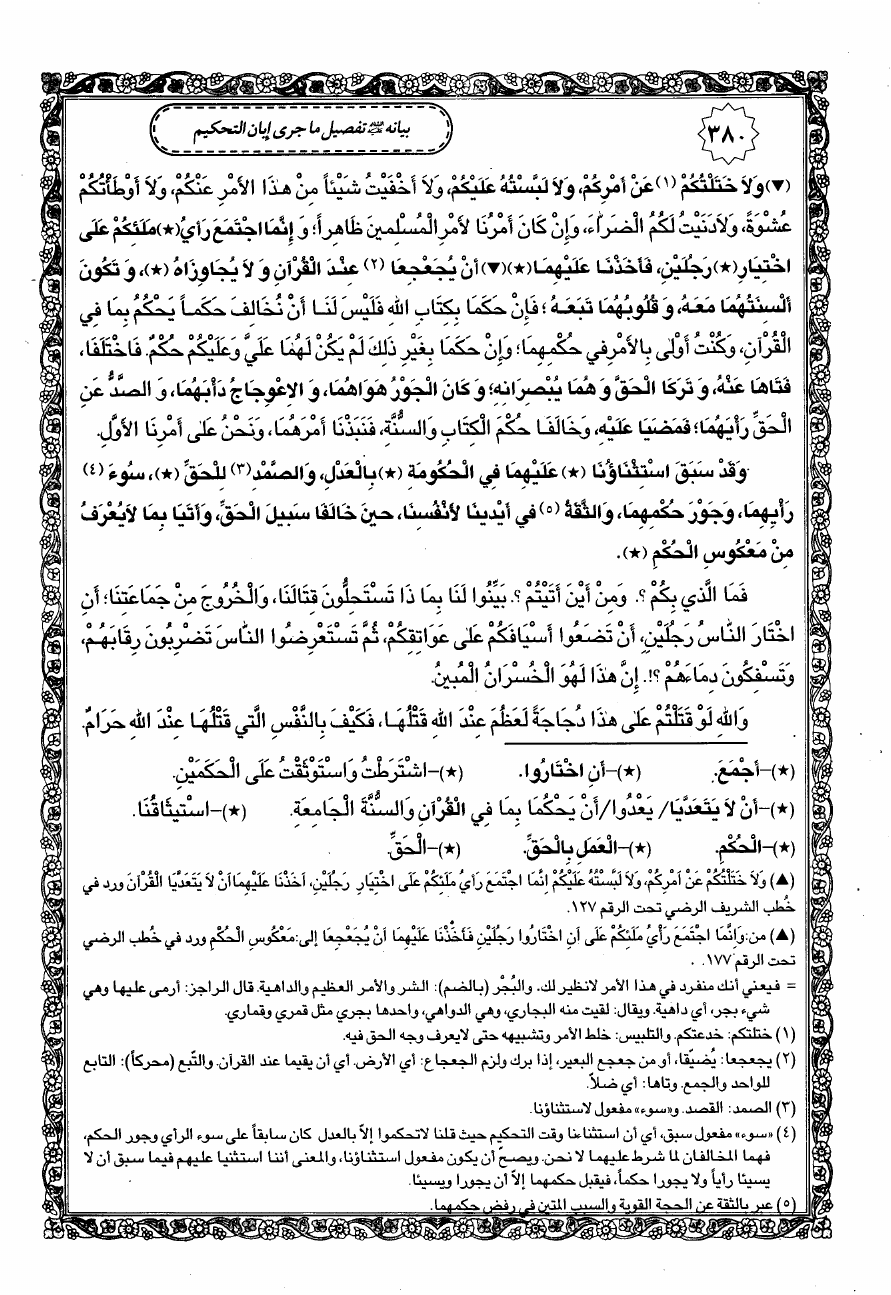 ٣٨٠
بيانه ﷺ تفصيل ما جرى إبان التحكيم
(▼) وَلاَ خَتَلْتُكُمْ (١) عَنْ أَمْرِكُمْ، وَلاَ لَبَّسْتُهُ عَلَيْكُمْ، وَلاَ أَخْفَيْتُ شَيْئاً مِنْ هٰذَا الأَمْرِ عَنْكُمْ، وَلاَ أَوْطَأْتُكُمْ
عُشْوَةً، وَلاَدَنَيْتُ لَكُمُ الضَرَّاءَ، وَإِنْ كَانَ أَمْرُنَا لأَمْرِ الْمُسْلِمينَ ظَاهِراً؛ وَ إِنَّمَا اجْتَمَعَ رَأْيُ (★) مَلَئِكُمْ عَلَى
اخْتِيَارِ (★) رَجُلَيْنِ، فَأَخَذْنَا عَلَيْهِمَا (★) (▼) أَنْ يُجَعْجِعَا (٢) عِنْدَ الْقُرْآنِ وَ لاَ يُجَاوِزَاهُ (★)، وَ تَكُونَ
أَلْسِنَتُهُمَا مَعَهُ، وَ قُلُوبُهُمَا تَبَعَهُ؛ فَإِنْ حَكَمَا بِكِتَابِ اللهِ فَلَيْسَ لَنَا أَنْ نُخَالِفَ حَكَماً يَحْكُمُ بِمَا فِي
الْقُرْآنِ، وَكُنْتُ أَوْلىٰ بِالأَمْرِ في حُكْمِهِمَا؛ وَإِنْ حَكَمَا بِغَيْرِ ذٰلِكَ لَمْ يَكُنْ لَهُمَا عَلَيَّ وَعَلَيْكُمْ حُكْمٌ. فَاخْتَلَفَا،
فَتَاهَا عَنْهُ، وَ تَرَكَا الْحَقَّ وَ هُمَا يُبْصِرَانِهِ؛ وَ كَانَ الْجَوْرُ هَوَاهُمَا، وَ الاِعْوِجَاجُ دَأْبَهُمَا، وَ الصَّدُّ عَنِ
الْحَقِّ رَأْيَهُمَا؛ فَمَضَيَا عَلَيْهِ، وَخَالَفَا حُكْمَ الْكِتَابِ وَالسُنَّةِ، فَنَبَذْنَا أَمْرَهُمَا، وَنَحْنُ عَلىٰ أَمْرِنَا الأَوَّلِ.
وَقَدْ سَبَقَ اسْتِثْنَاؤُنَا (★) عَلَيْهِمَا فِي الْحُكُومَةِ (★) بِالْعَدْلِ، وَالصَّمْدِ (٣) لِلْحَقِّ (★)، سُوءَ (٤)
رَأْيِهِمَا، وَجَوْرَ حُكْمِهِمَا، وَالثِّقَةُ (٥) في أَيْدينَا لأَنْفُسِنَا، حينَ خَالَفَا سَبيلَ الْحَقِّ، وَأَتَيَا بِمَا لاَ يُعْرَفُ
مِنْ مَعْكُوسِ الْحُكْمِ (★).
فَمَا الَّذي بِكُمْ؟. وَمِنْ أَيْنَ أُتيتُمْ؟. بَيِّنُوا لَنَا بِمَا ذَا تَسْتَحِلُّونَ قِتَالَنَا، وَالْخُرُوجَ مِنْ جَمَاعَتِنَا؛ أَنِ
اخْتَارَ النَّاسُ رَجُلَيْنِ، أَنْ تَضَعُوا أَسْيَافَكُمْ عَلىٰ عَوَاتِقِكُمْ، ثُمَّ تَسْتَعْرِضُوا النَّاسَ تَضْرِبُونَ رِقَابَهُمْ،
وَتَسْفِكُونَ دِمَاءَهُمْ؟!. إِنَّ هٰذَا لَهُوَ الْخُسْرَانُ الْمُبينُ.
وَاللهِ لَوْ قَتَلْتُمْ عَلىٰ هٰذَا دُجَاجَةً لَعَظُمَ عِنْدَ اللهِ قَتْلُهَا، فَكَيْفَ بِالنَّفْسِ الَّتي قَتْلُهَا عِنْدَ اللهِ حَرَامٌ.
(★)-أَجْمَعَ. (★)-أَنِ اخْتَارُوا. (★)-اشْتَرَطْتُ وَاسْتَوْثَقْتُ عَلَى الْحَكَمَيْنِ.
(★)-أَنْ لاَ يَتَعَدَّيَا/ يَعْدُوا/أَنْ يَحْكُمَا بِمَا فِي الْقُرْآنِ وَالسُنَّةِ الْجَامِعَةِ. (★)-اسْتيثَاقُنَا.
(★)-الْحُكْمِ. (★)-الْعَمَلِ بِالْحَقِّ. (★)-الْحَقِّ.
(▲) وَلاَ خَتَلْتُكُمْ عَنْ أَمْرِكُمْ، وَلاَ لَبَّسْتُهُ عَلَيْكُمْ إِنَّمَا اجْتَمَعَ رَأْيُ مَلَئِكُمْ عَلَى اخْتِيَارِ رَجُلَيْنِ، أَخَذْنَا عَلَيْهِمَا أَنْ لاَ يَتَعَدَّيَا الْقُرْآنَ ورد في
خُطب الشريف الرضي تحت الرقم ١٢٧.
(▲) من: وَإِنَّمَا اجْتَمَعَ رَأْيُ مَلَئِكُمْ عَلَى أَنِ اخْتَارُوا رَجُلَيْنِ فَأَخَذْنَا عَلَيْهِمَا أَنْ يُجَعْجِعَا إلى: مَعْكُوسِ الْحُكْمِ ورد في خُطب الرضي
تحت الرقم ١٧٧.
= فيعني أنك منفرد في هذا الأمر لانظير لك. والبُجْر (بالضم): الشر والأمر العظيم والداهية. قال الراجز: أرمى عليها وهي
شيء بجر، أي داهية. ويقال: لقيت منه البجاري، وهي الدواهي، واحدها بجري مثل قمري وقماري.
(١) ختلتكم: خدعتكم. والتلبيس: خلط الأمر وتشبيهه حتى لايعرف وجه الحق فيه.
(٢) يجعجعا: يُضيّقا، أو من جعجع البعير، إذا برك ولزم الجعجاع: أي الأرض. أي أن يقيما عند القرآن. والتّبع (محركاً): التابع
للواحد والجمع. وتاها: أي ضلاّ.
(٣) الصمد: القصد. و«سوء» مفعول لاستثناؤنا.
(٤) «سوء» مفعول سبق، أي أن استثناءنا وقت التحكيم حيث قلنا لاتحكموا إلاّ بالعدل كان سابقاً على سوء الرأي وجور الحكم،
فهما المخالفان لما شرط عليهما لا نحن. ويصح أن يكون مفعول استثناؤنا، والمعنى أننا استثنيا عليهم فيما سبق أن لا
يسيئا رأياً ولا يجورا حكماً، فيقبل حكمهما إلاّ أن يجورا ويسيئا.
(٥) عبر بالثقة عن الحجة القوية والسبب المتين في رفض حكمهما.